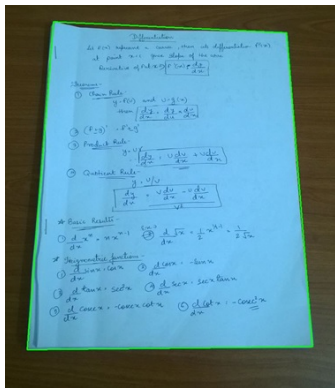 Differentiation
Let F(x) represent a curve, then its differentiation F'(x)
at point x=c gives slope of the curve
Derivative of F(x) is F'(x) = dy/dx
Theorems-
① Chain Rule-
y = F(v) and
then dy/dx = dy/du × du/dx
③ Product Rule-
y = UV
dy/dx = U dv/dx + V du/dx
④ Quotient Rule-
y = U/V
* Basic Results
① d/dx xⁿ = n xⁿ⁻¹ ② d/dx √x = 1/2 = 1/2√x
* Trigonometric functions-
① d/dx sinx = cosx ② d/dx cosx =
③ d/dx tanx = sec²x ④ d/dx secx = secx tanx
⑤ d/dx cosecx = -cosecx cotx ⑥ d/dx cotx = -cosec²x